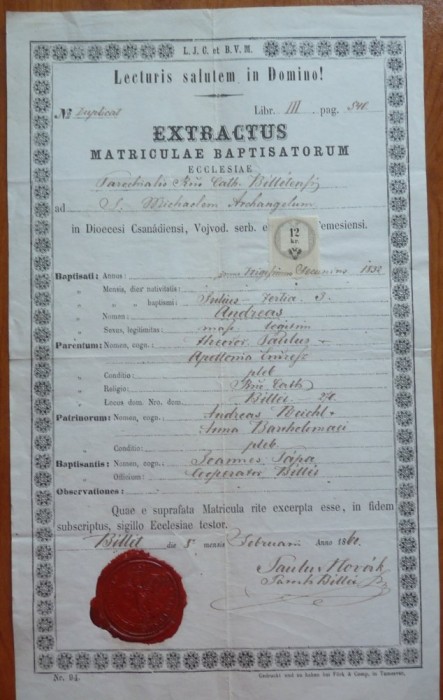 L. J. C. et B. V. M.
Lecturis salutem in Domino!
No Duplicas Libr. III pag. 541.
EXTRACTUS
MATRICULAE BAPTISATORUM
ECCLESIAE
Parochialis Rno Cath. Billétensis
ad S. Michaelem Archangelum
in Dioecesi Csanádiensi, Vojvod. serb. e Temesiensi.
12
kr.
Baptisati: Annus: 1832
„ Mensis, dies nativitatis:
„ „ „ baptismi: Julius - tertia 3.
„ Nomen: Andreas
„ Sexus, legitimitas: masc legitim
Parentum: Nomen, cogn.: Theodor Paulus
Apollonia
„ Conditio: pleb
„ Religio: Rno Cath
„ Locus dom. Nro. dom. Billét
Patrinorum: Nomen, cogn.: Andreas Reichl
Anna
„ Conditio: pleb.
Baptisantis: Nomen, cogn.: Joannes Pápa
„ Officium: Cooperator Billét
Observationes:
Quae e suprafata Matricula rite excerpta esse, in fidem
subscriptus, sigillo Ecclesiae testor.
Billét die 8a mensis Februarii Anno 1861.
Paulus Novák
Paroch Billét
Nr. 94.
Gedruckt und zu haben bei Förk & Comp. in Temesvar.